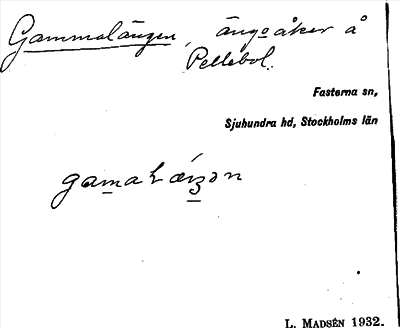 Gammalängen, ängsåker å
Pellebol.
Fasterna sn,
Sjuhundra hd, Stockholms län
L. MADSÉN 1932.